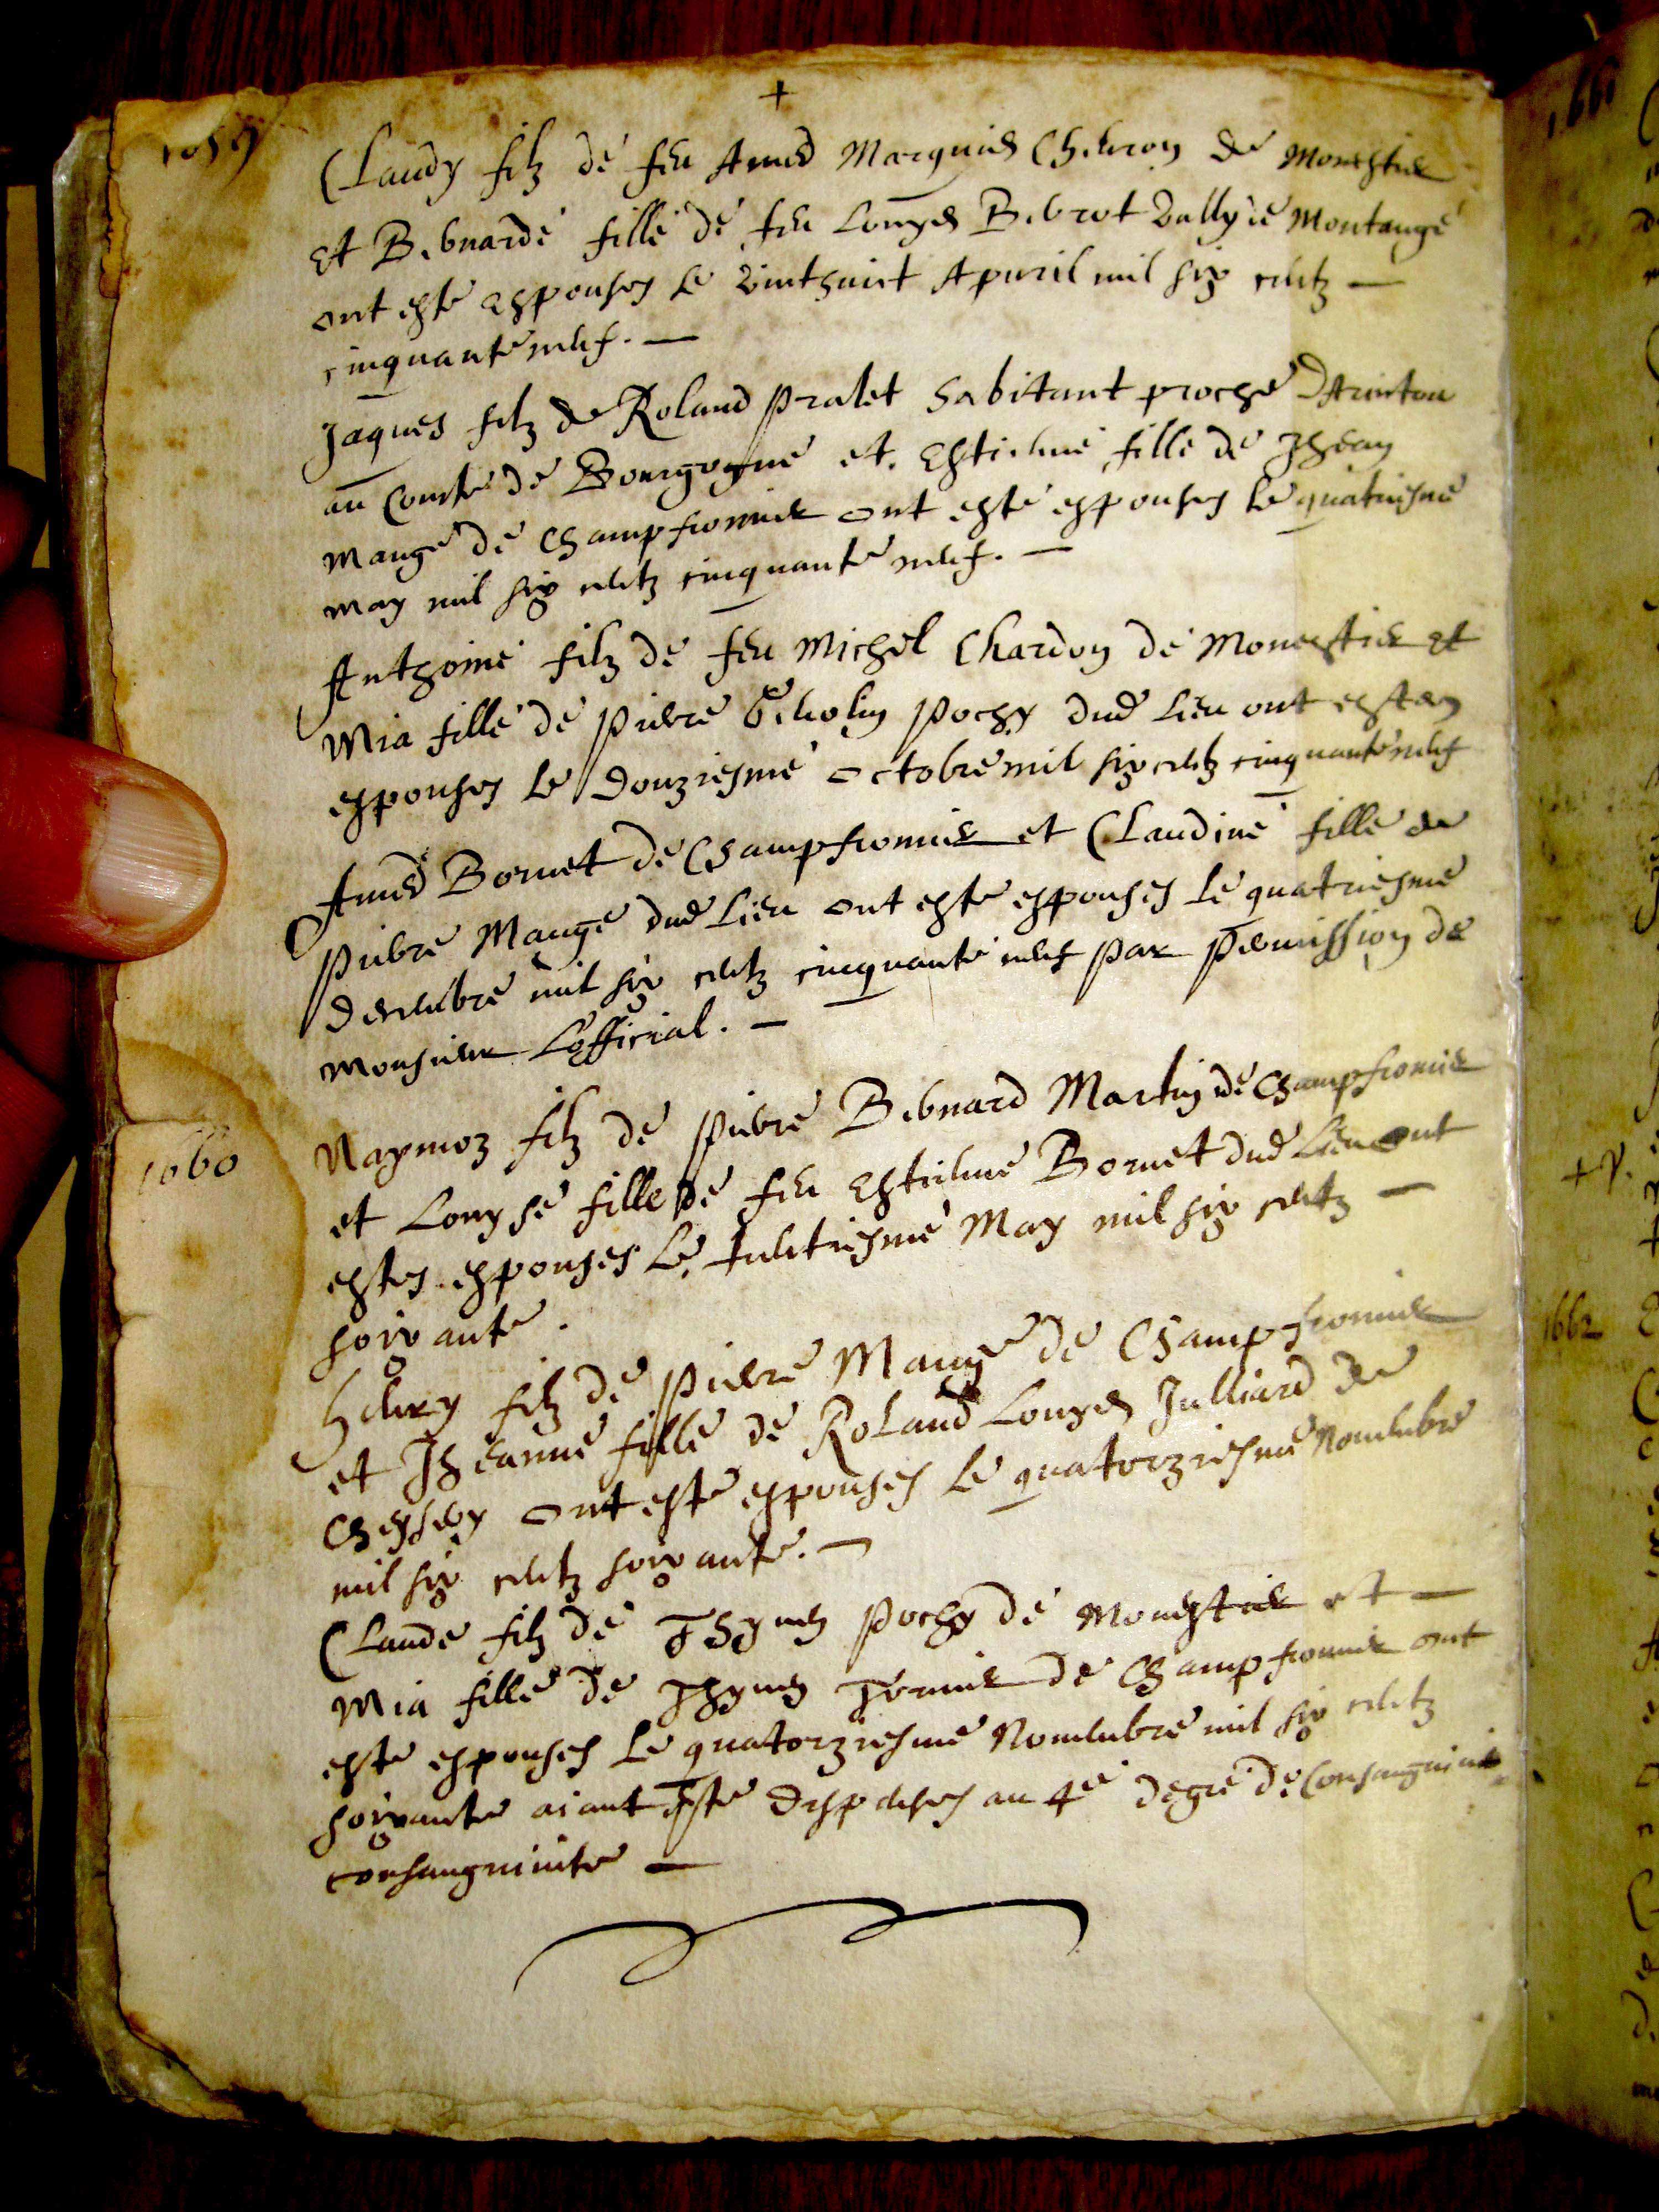 +
1659
Claudy filz de feu Amed Marquis Chevron de Monestier
et Bernarde fille de feu Louys Berrot Ballyie Montange
ont esté espousés le vinthuict Apvril mil six centz —
cinquante neuf. —
Jaques filz de Roland Pralet habitant proche
au Comté de Bourgogne et. Estienne fille de Jhean
Mange de Champfromier ont esté espousés le quatriesme
May mil six centz cinquante neuf. —
Anthoine filz de feu Michel Chardon de Monestier et
Mia fille de Pierre Pochy dud lieu ont estez
espousés le douziesme octobre mil six centz cinquante neuf
Amed Bornet de Champfromier et Claudine fille de
Pierre Mange dud lieu ont esté espousés le quatriesme
decembre mil six centz cinquante neuf par permission de
Monsieur L'official. —
1660
Naymoz filz de Pierre Bernard Martin de Champfromier
et Louyse fille de feu Estienne Bornet dud lieu ont
estés espousés le. May mil six centz —
soixante.
Henry filz de Pierre Mange de Champfromier
et Jheanne fille de Roland Louys Julliard de
Chessery ont esté espousés le quatorziesme Novembre
mil six centz soixante. —
Claude filz de Thyven Pochy de Monestier et —
Mia fille de Thyven de Champfromier ont
esté espousés le quatorziesme Novembre mil six centz
soixante aiant esté dispensés au 4e degré de Consanguinité
consanguinité —
1661
1662